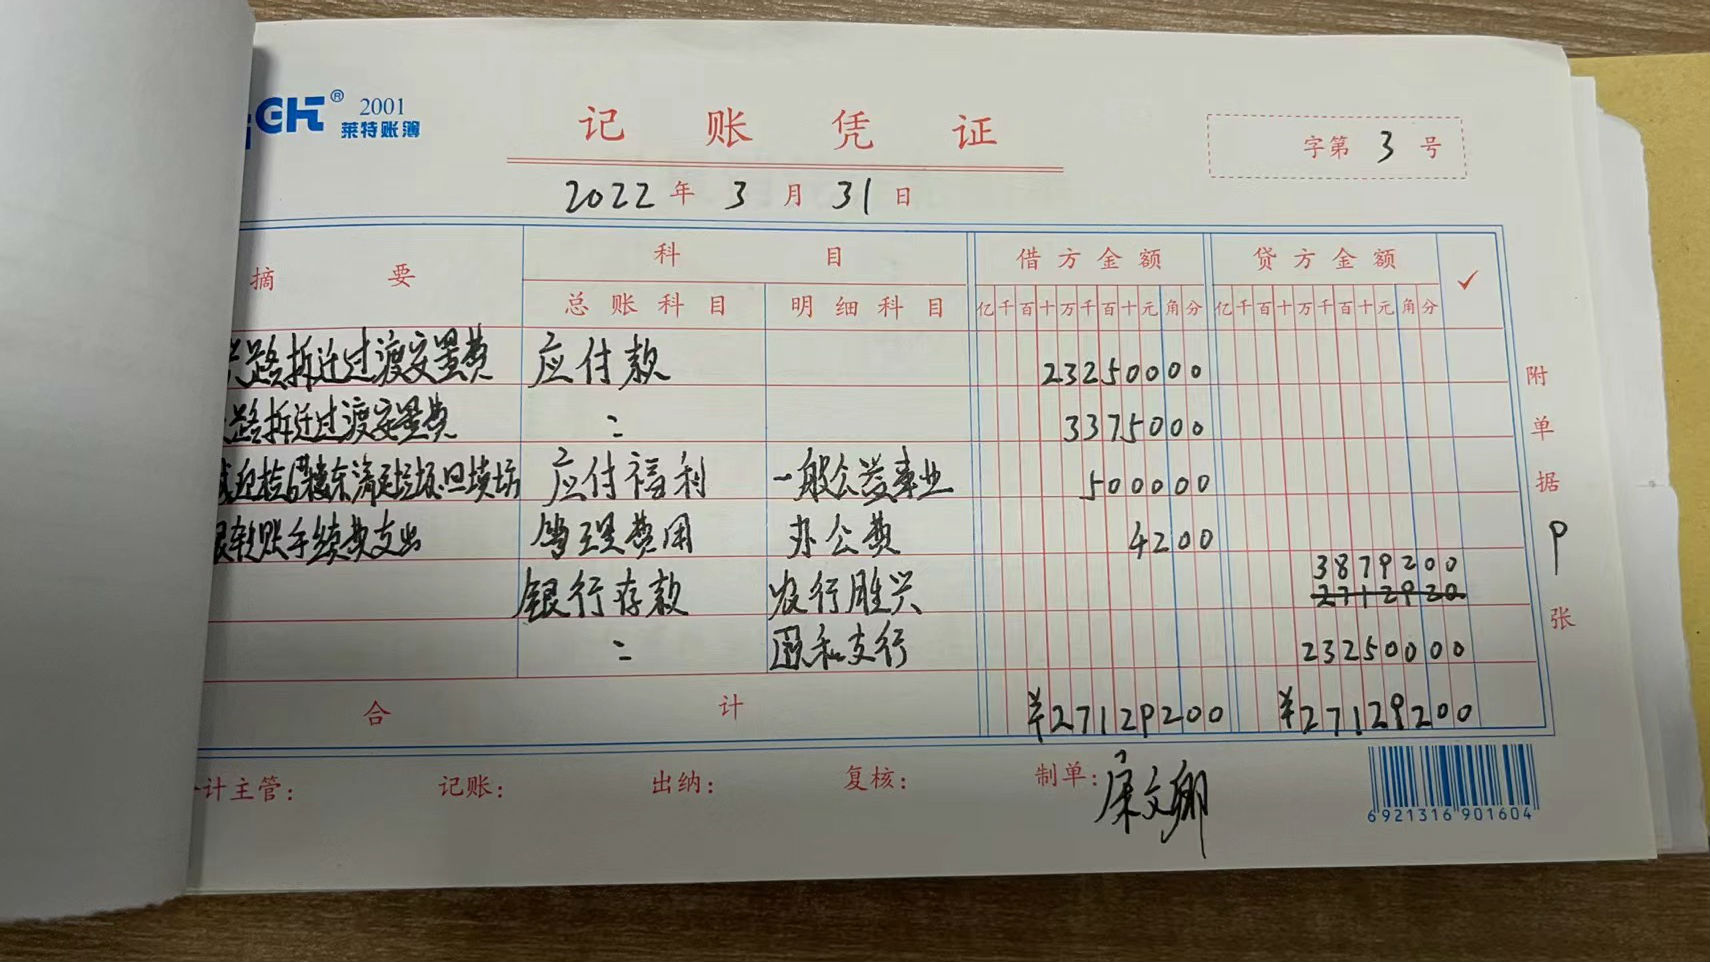 GH® 2001
莱特账簿
记账凭证
字第 3 号
2022 年 3 月 31 日
摘要 科目 借方金额 贷方金额 ✓
总账科目 明细科目 亿千百十万千百十元角分 亿千百十万千百十元角分
路拆迁过渡安置费 应付款 23250000
路拆迁过渡安置费 〃 3375000
应付福利 一般公益事业 500000
转账手续费支出 管理费用 办公费 4200
3879200
银行存款 农行胜兴 27129200
〃 颐和支行 23250000
合计 ¥27129200 ¥27129200
附单据 9 张
计主管: 记账: 出纳: 复核: 制单: 康文卿
6 921316 901604